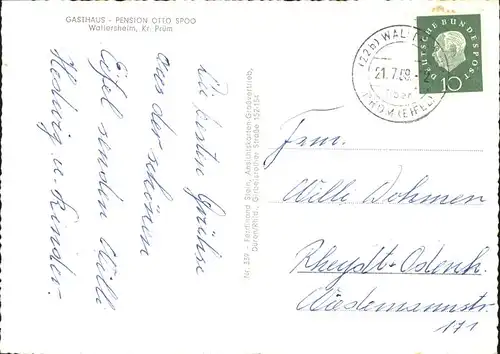 GASTHAUS - PENSION OTTO SPOO
Wallersheim, Kr. Prüm
Die besten Grüße
aus der schönen
Eifel senden Willi
Hedwig u. Kinder.
Nr. 359 - Ferdinand Stein, Ansichtskarten-Großvertrieb,
Düren/Rhld., Girbelsrather Straße 152-154
(22b) WALL
21.7.59.-
über
PRÜM (EIFEL)
DEUTSCHE BUNDESPOST
10
Fam.
Willi Dohmen
Rheydt-Odenk.
Wiedemannstr.
171